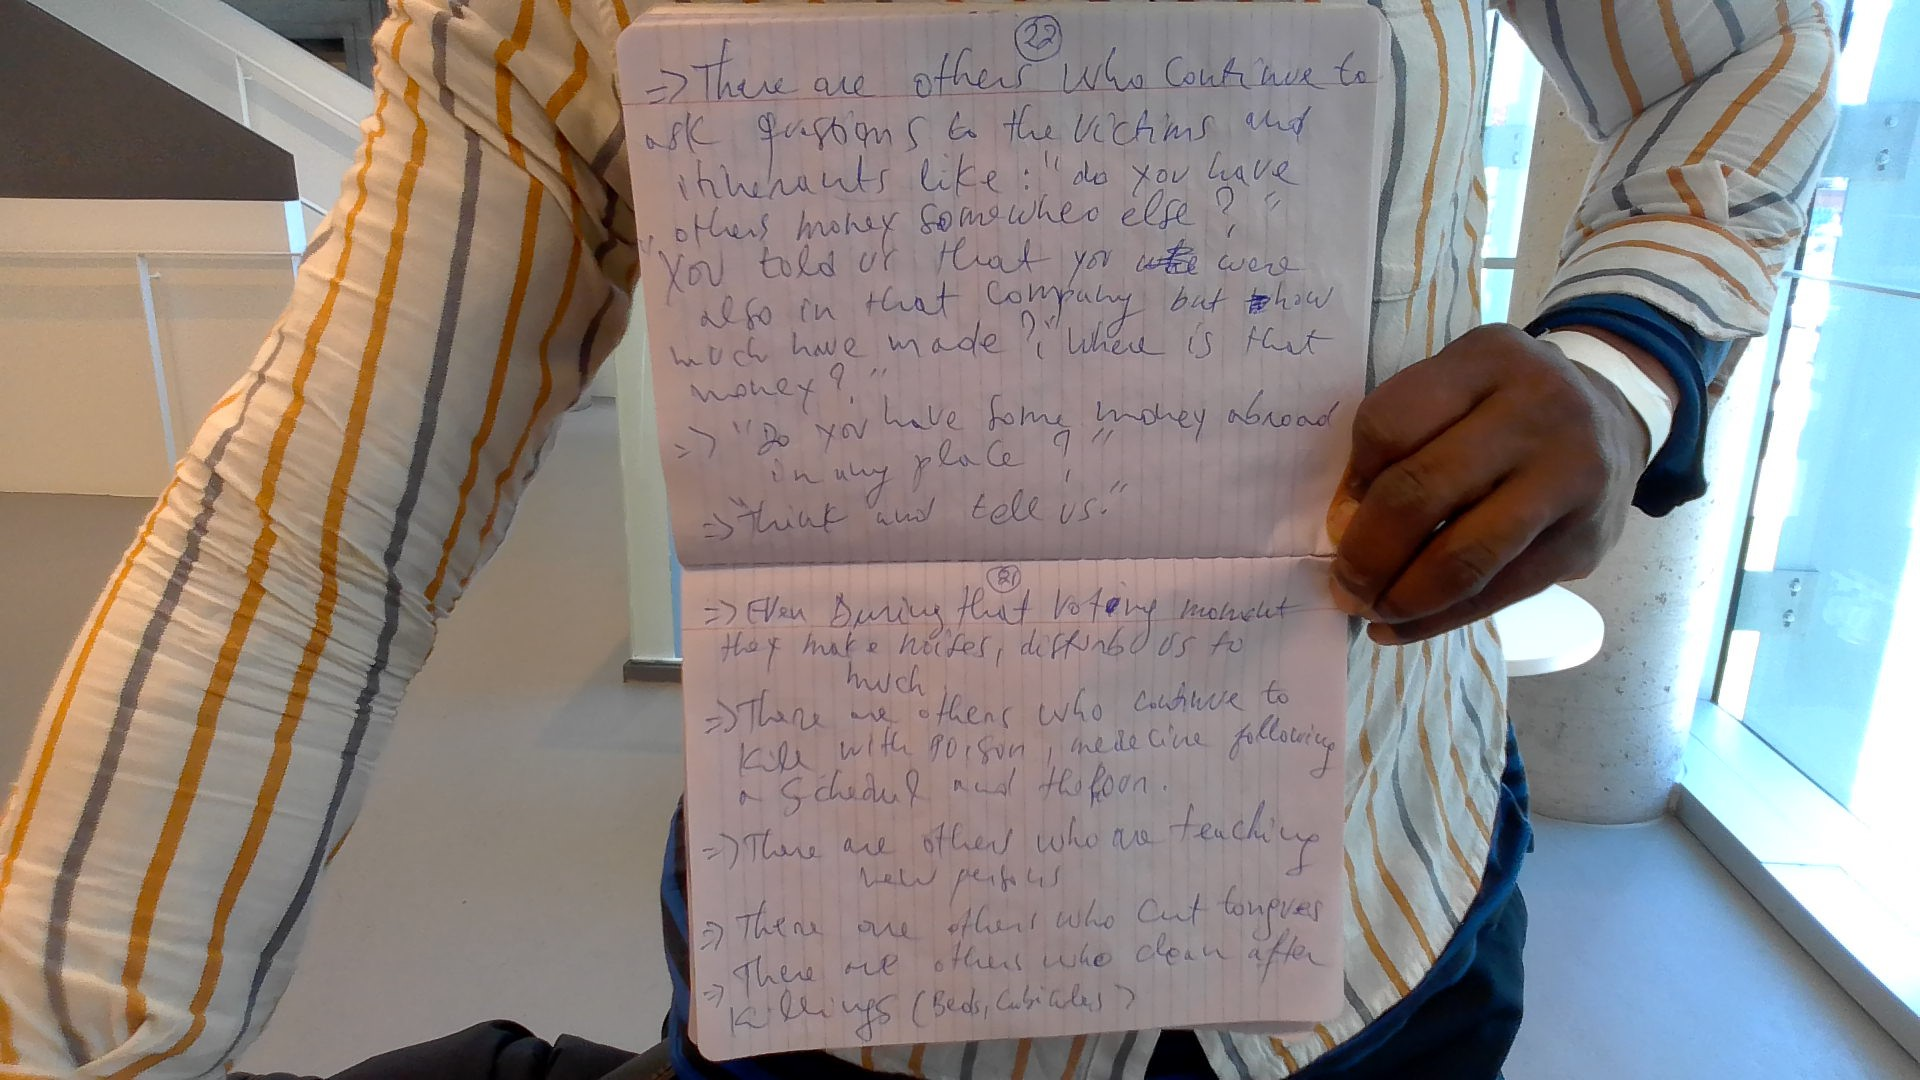 22
=> There are others who continue to
ask questions to the victims and
itinerants like : "do you have
others money somewhere else ? "
"You told us that you were
also in that company but how
much have made ?; "Where is that
money ? "
=> "Do you have some money abroad
in any place ? "
=> "Think and tell us."
21
=> Even During that voting moment
they make noises, disturb us to
much
=> There are others who continue to
kill with poison, medecine following
a schedul and
=> There are others who are teaching
new persons
=> There are others who cut tongues
=> There are others who clean after
killings (Beds, Cubicules)